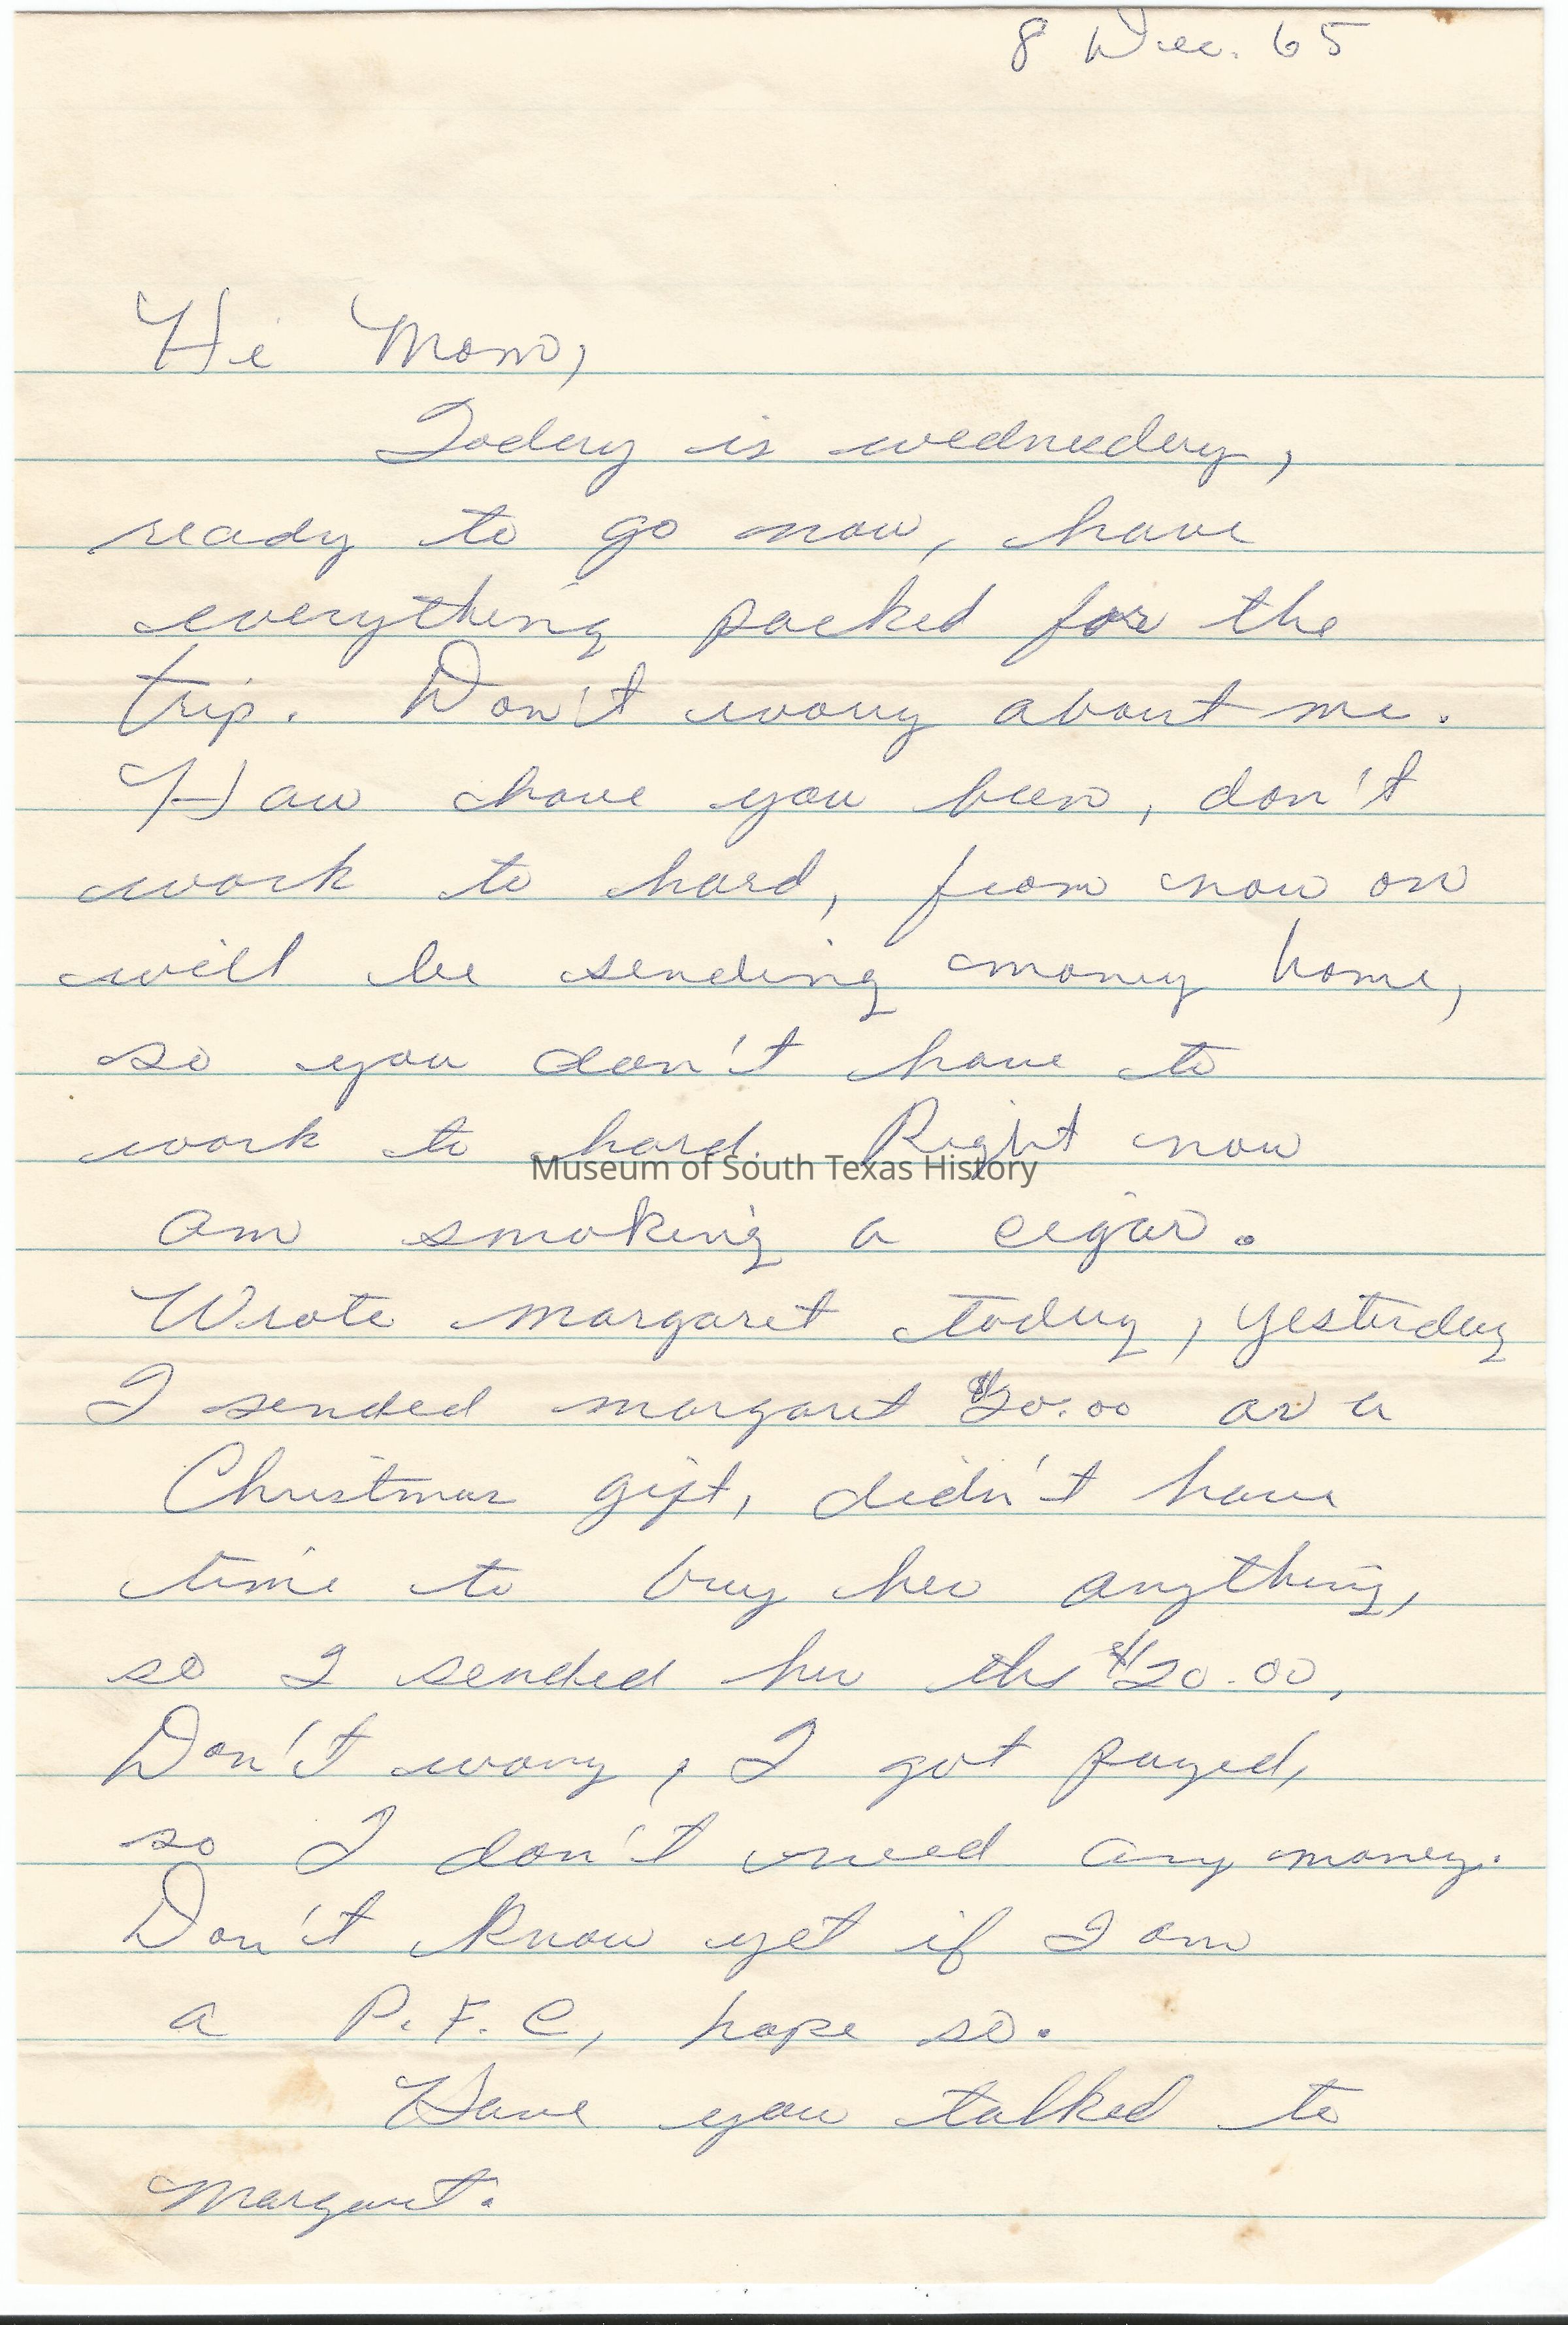 8 Dec. 65
Hi Mom,
Today is wednesday,
ready to go now, have
everything packed for the
trip. Don't worry about me.
How have you been, don't
work to hard, from now on
will be sending money home,
so you don't have to
work to hard. Right now
Museum of South Texas History
am smoking a cigar.
Wrote margaret today, yesterday
I sended margaret $20.00 as a
Christmas gift, didn't have
time to buy her anything,
so I sended her the $20.00,
Don't worry, I got payed,
so I don't need any money.
Don't know yet if I am
a P.F.C, hope so.
Have you talked to
Margaret.